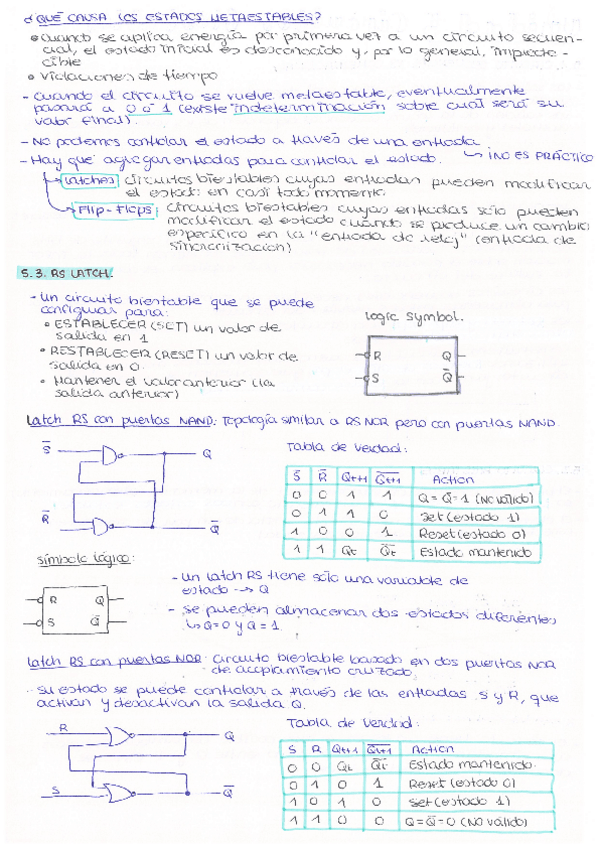 ¿QUÉ CAUSA LOS ESTADOS METAESTABLES?
• Cuando se aplica energía por primera vez a un circuito secuen-
cial, el estado inicial es desconocido y, por lo general, impredе-
cible
• Violaciones de tiempo
- Cuando el circuito se vuelve metaestable, eventualmente
pasará a 0 ó 1 (existe indeterminación sobre cual será su
valor final).
- No podemos controlar el estado a través de una entrada.
- Hay que agregar entradas para controlar el estado. ↳ ¡NO ES PRÁCTICO
Latches: circuitos biestables cuyas entradas pueden modificar
el estado en casi todo momento.
Flip-Flops: circuitos biestables cuyas entradas sólo pueden
modificar el estado cuando se produce un cambio
específico en la "entrada de reloj" (entrada de
sincronización)
5.3. RS LATCH.
- Un circuito biestable que se puede
configurar para:
• ESTABLECER (SET) un valor de
salida en 1
• RESTABLECER (RESET) un valor de
salida en 0.
• Mantener el valor anterior (la
salida anterior)
Logic symbol.
R Q
S Q̅
Latch RS con puertas NAND: Topología similar a RS NOR pero con puertas NAND.
S̅ Q
R̅ Q̅
Tabla de verdad:
S̅ R̅ Qt+1 Q̅t+1 Action
0 0 1 1 Q = Q̅ = 1 (No válido)
0 1 1 0 Set (estado 1)
1 0 0 1 Reset (estado 0)
1 1 Qt Q̅t Estado mantenido
símbolo lógico:
R Q
S Q̅
- Un latch RS tiene sólo una variable de
estado --> Q
- Se pueden almacenar dos estados diferentes
↳ Q=0 y Q=1.
Latch RS con puertas NOR: circuito biestable basado en dos puertas NOR
de acoplamiento cruzado.
· Su estado se puede controlar a través de las entradas S y R, que
activan y desactivan la salida Q.
R Q
S Q̅
Tabla de verdad:
S R Qt+1 Q̅t+1 Action
0 0 Qt Q̅t Estado mantenido.
0 1 0 1 Reset (estado 0)
1 0 1 0 Set (estado 1)
1 1 0 0 Q = Q̅ = 0 (NO válido)